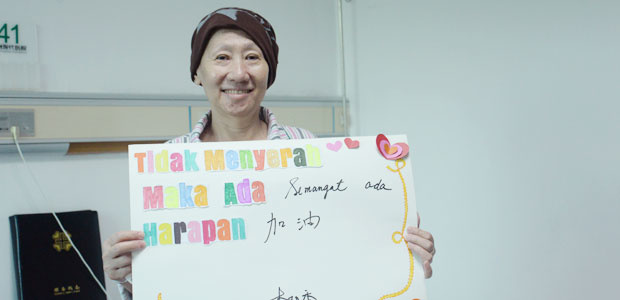 41
Tidak Menyerah
Maka Ada Semangat ada
Harapan 加油